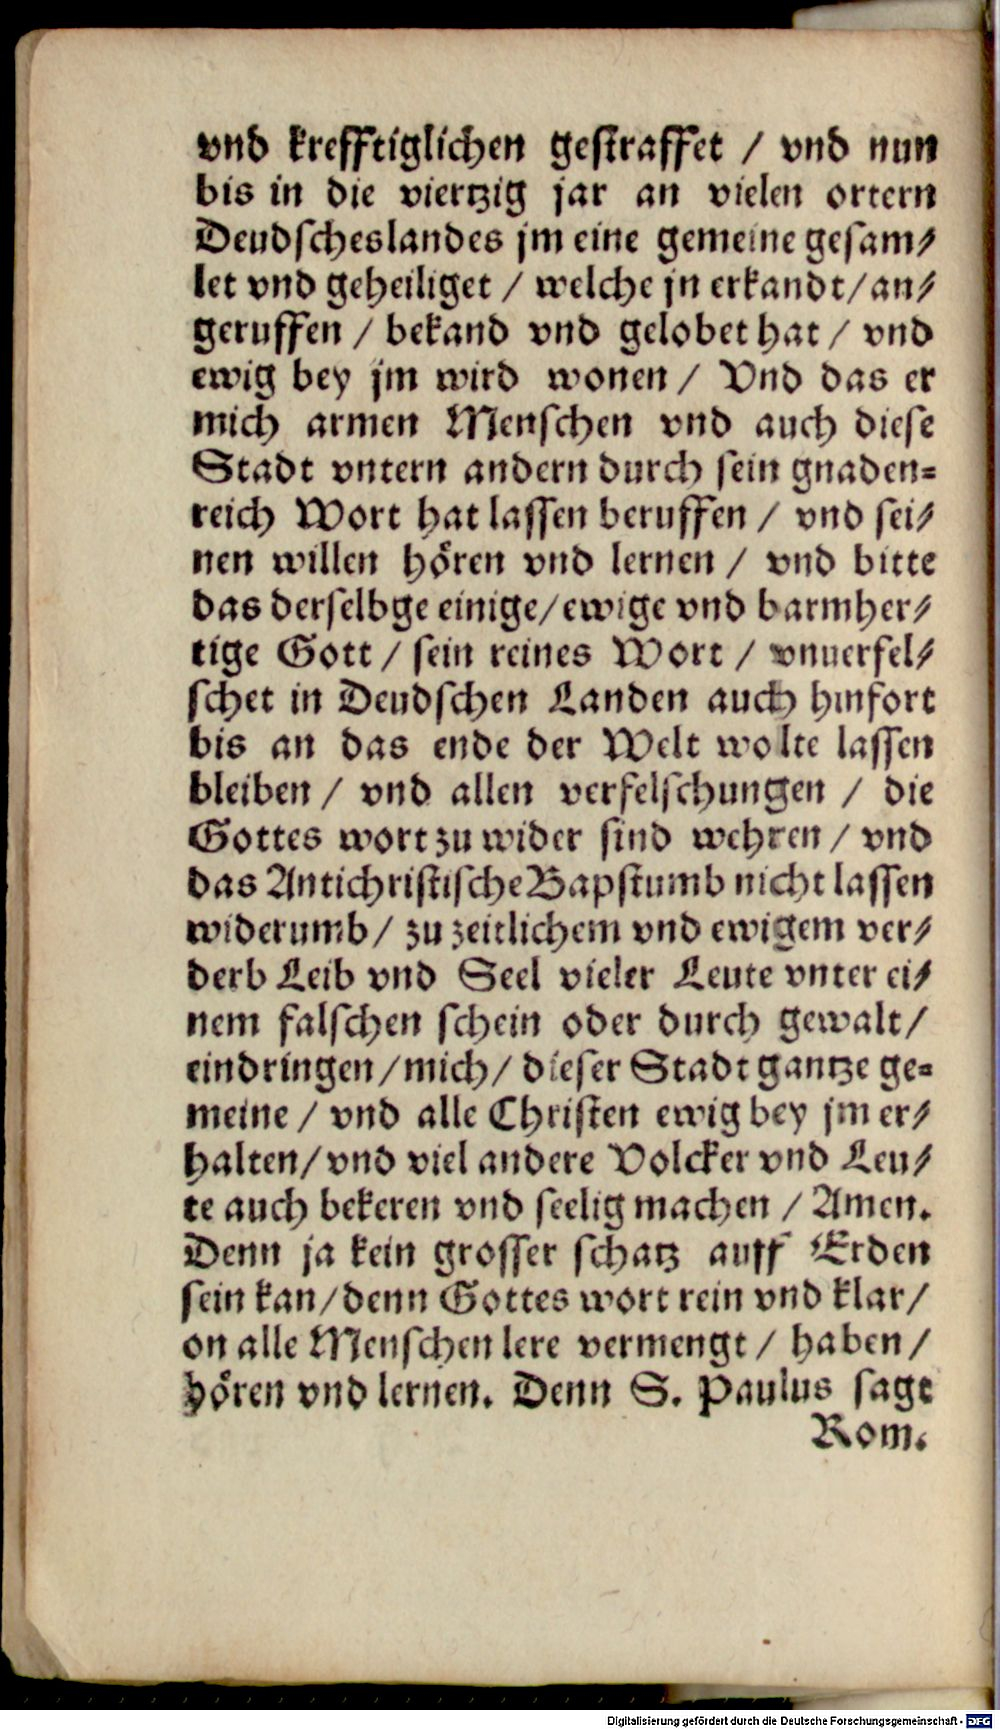 vnd krefftiglichen gestraffet / vnd nun
bis in die viertzig jar an vielen ortern
Deudscheslandes jm eine gemeine gesam⸗
let vnd geheiliget / welche jn erkandt/ an⸗
geruffen / bekand vnd gelobet hat / vnd
ewig bey jm wird wonen / Vnd das er
mich armen Menschen vnd auch diese
Stadt vntern andern durch sein gnaden=
reich Wort hat lassen beruffen / vnd sei⸗
nen willen hören vnd lernen / vnd bitte
das derselbge einige/ ewige vnd barmher⸗
tige Gott / sein reines Wort / vnuerfel⸗
schet in Deudschen Landen auch hinfort
bis an das ende der Welt wolte lassen
bleiben / vnd allen verfelschungen / die
Gottes wort zu wider sind wehren / vnd
das Antichristische Bapstumb nicht lassen
widerumb/ zu zeitlichem vnd ewigem ver⸗
derb Leib vnd Seel vieler Leute vnter ei⸗
nem falschen schein oder durch gewalt/
eindringen/ mich/ dieser Stadt gantze ge=
meine / vnd alle Christen ewig bey jm er⸗
halten/ vnd viel andere Volcker vnd Leu⸗
te auch bekeren vnd seelig machen / Amen.
Denn ja kein grosser schatz auff Erden
sein kan/ denn Gottes wort rein vnd klar/
on alle Menschen lere vermengt / haben /
hören vnd lernen. Denn S. Paulus sagt
Rom.
Digitalisierung gefördert durch die Deutsche Forschungsgemeinschaft - DFG